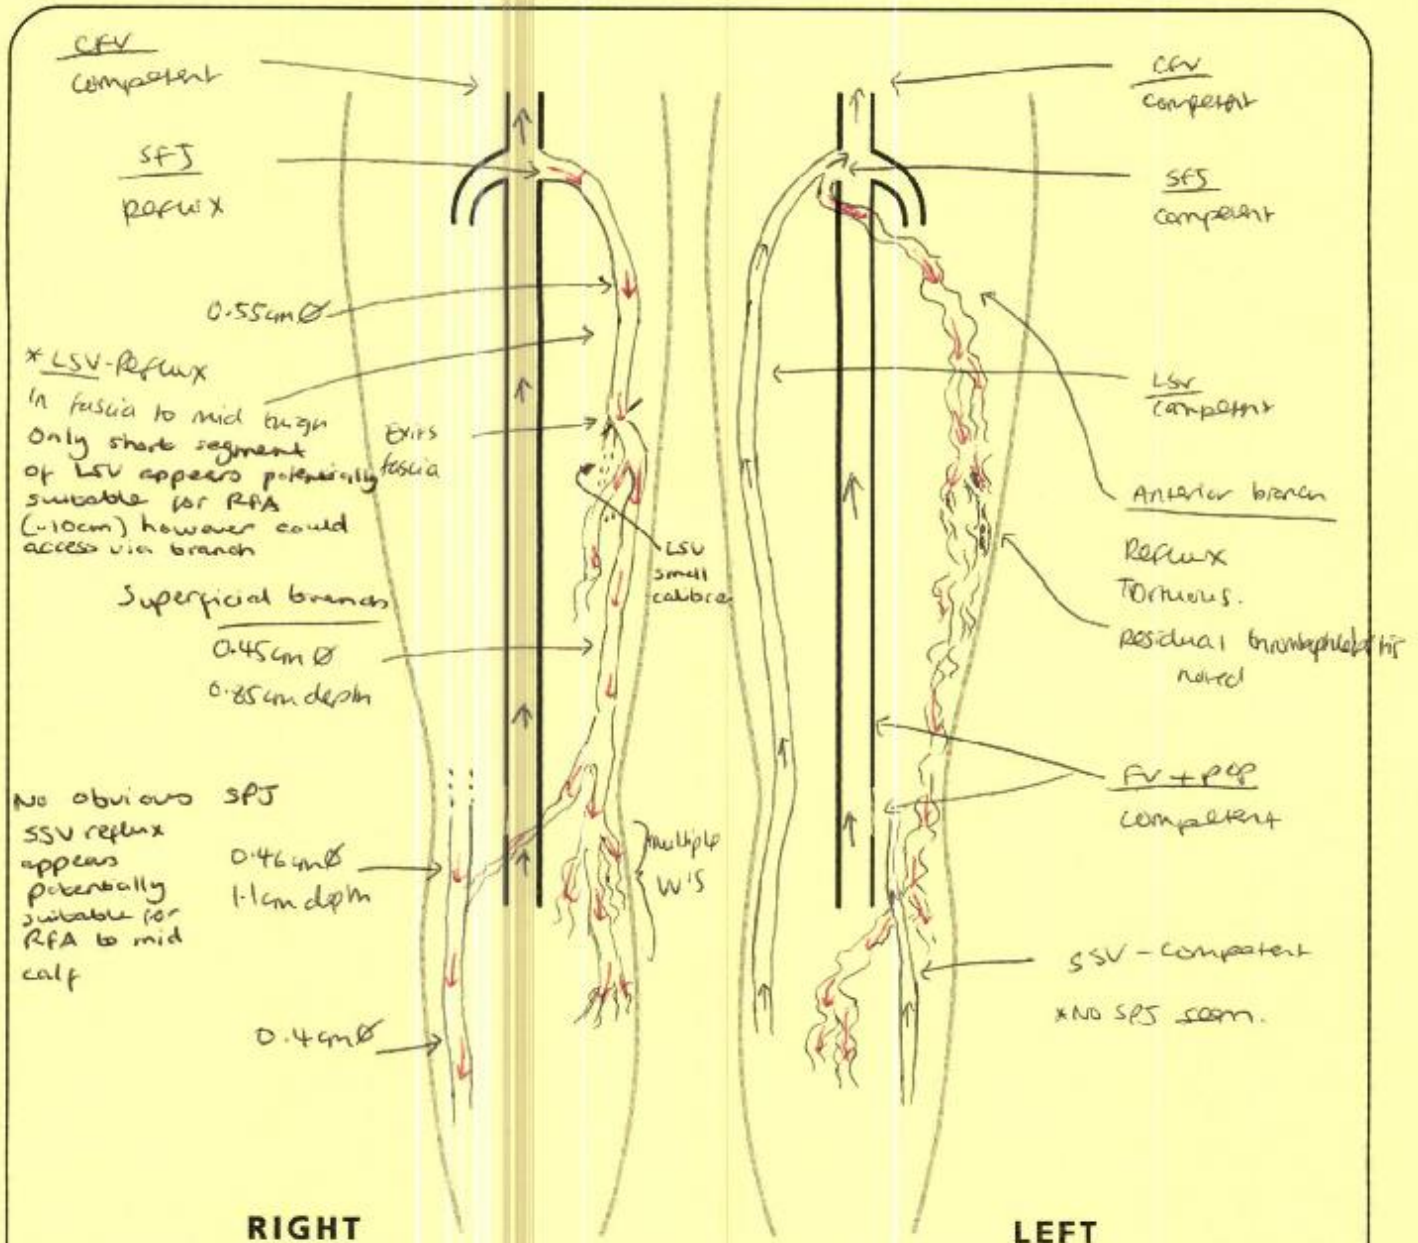 CFV
competent
SFJ
Reflux
0.55cm Ø
* LSV - Reflux
in fascia to mid thigh
Only short segment
of LSV appears potentially
suitable for RFA
(~10cm) however could
access via branch
Exits
fascia
LSV
small
calibre
Superficial branch
0.45cm Ø
0.85cm depth
No obvious SPJ
SSV reflux
appears
potentially
suitable for
RFA to mid
calf
0.46cm Ø
1.1cm depth
multiple
VV'S
0.4cm Ø
RIGHT
CFV
competent
SFJ
competent
LSV
competent
Anterior branch
Reflux
Tortuous.
Residual thrombophlebitis
noted
FV + pop
competent
SSV - competent
*NO SPJ seen.
LEFT